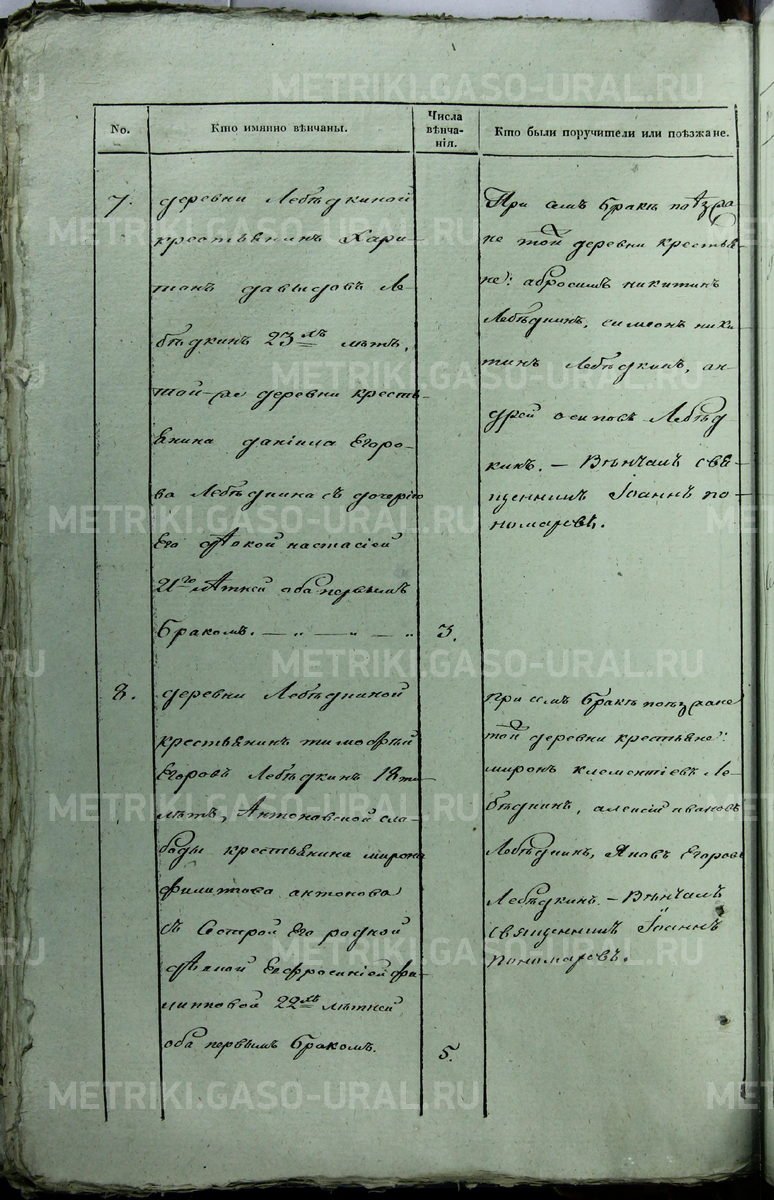 METRIKI.GASO-URAL.RU
No.
Кто имянно вѣнчаны.
Числа
вѣнча-
нія.
Кто были поручители или поѣзжане.
7.
деревни Лебѣдкиной
крестьянинъ Хари-
тонъ давыдовъ Ле-
бѣдкинъ 23хъ лѣтъ,
той-же деревни кресть-
янина даніила Егоро-
ва Лебѣдкина съ дочерію
Его дѣвкой настасіей
21го лѣтней оба первымъ
бракомъ. — „ — „ — „
3.
При семъ бракѣ поѣзжа-
не той деревни крестья-
не: абросимъ никитинъ
Лебѣдкинъ, симеонъ ники-
тинъ Лебѣдкинъ, ан-
дрей осиповъ Лебѣд-
кинъ. — Вѣнчалъ свя-
щенникъ Іоаннъ по-
номаревъ.
8.
деревни Лебѣдкиной
крестьянинъ тимофѣй
Егоровъ Лебѣдкинъ 18ти
лѣтъ, Антоновской сло-
боды крестьянина мирона
филиппова антонова
съ Сестрой Его родной
дѣвкой Евфросиніей фи-
липповой 22хъ лѣтней
оба первымъ бракомъ.
5.
При семъ бракѣ поѣзжане
той деревни крестьяне:
миронъ клементіевъ Ле-
бѣдкинъ, алексій ивановъ
Лебѣдкинъ, Яковъ Егоровъ
Лебѣдкинъ. — Вѣнчалъ
священникъ Іоаннъ
пономаревъ.